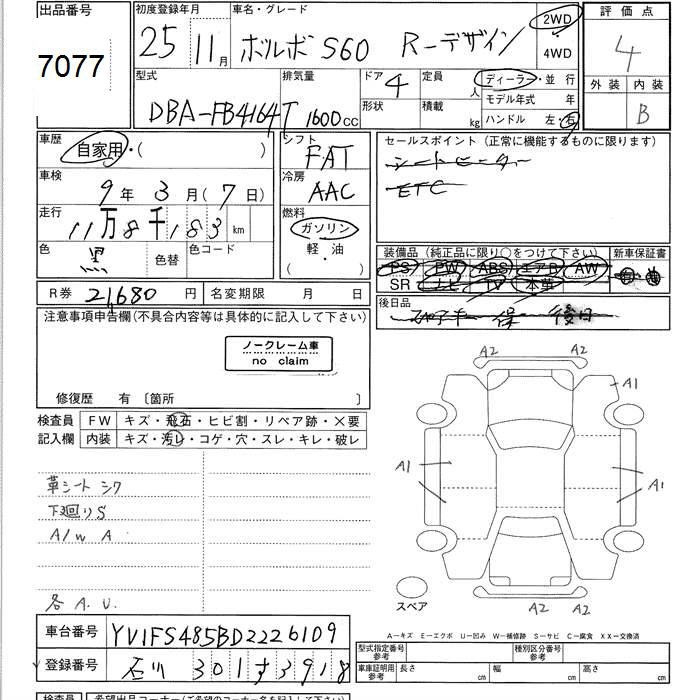 出品番号
7077
初度登録年月
25 11月
車名・グレード
ボルボ S60 R-デザイン
2WD
4WD
評価点
4
外装 内装
B
型式
DBA-FB4164T
排気量
1600cc
ドア
4
形状
定員
人
積載
kg
ディーラー・並行
モデル年式 年
ハンドル 左・右
車歴
自家用・( )
車検
9年 3月(7日)
走行
11万8千183km
色
黒
色替
色コード
シフト
FAT
冷房
AAC
燃料
ガソリン
軽・油
( )
セールスポイント(正常に機能するものに限ります)
シートヒーター
ETC
装備品(純正品に限り○をつけて下さい)
PS PW ABS エアB AW
SR ナビ TV 本革
新車保証書
後日品
R券 21,680円
名変期限 月 日
注意事項申告欄(不具合内容等は具体的に記入して下さい)
ノークレーム車
no claim
修復歴 有〔箇所 〕
検査員
記入欄
FW キズ・飛石・ヒビ割・リペア跡・×要
内装 キズ・汚レ・コゲ・穴・スレ・キレ・破レ
革シート シワ
下廻りS
A/W A
各 A.U.
A2 A2
A1
A1
A1
A2 A2
スペア
A-キズ E-エクボ U-凹み W-補修跡 S-サビ C-腐食 XX-交換済
車台番号
YV1FS485BD2226109
登録番号
石川 301す3918
型式指定番号
参考
種別区分番号
参考
車庫証明用
参考
長さ cm
幅 cm
高さ cm
検査員
希望出品コーナー(ご希望のコーナー名を記入して下さい)